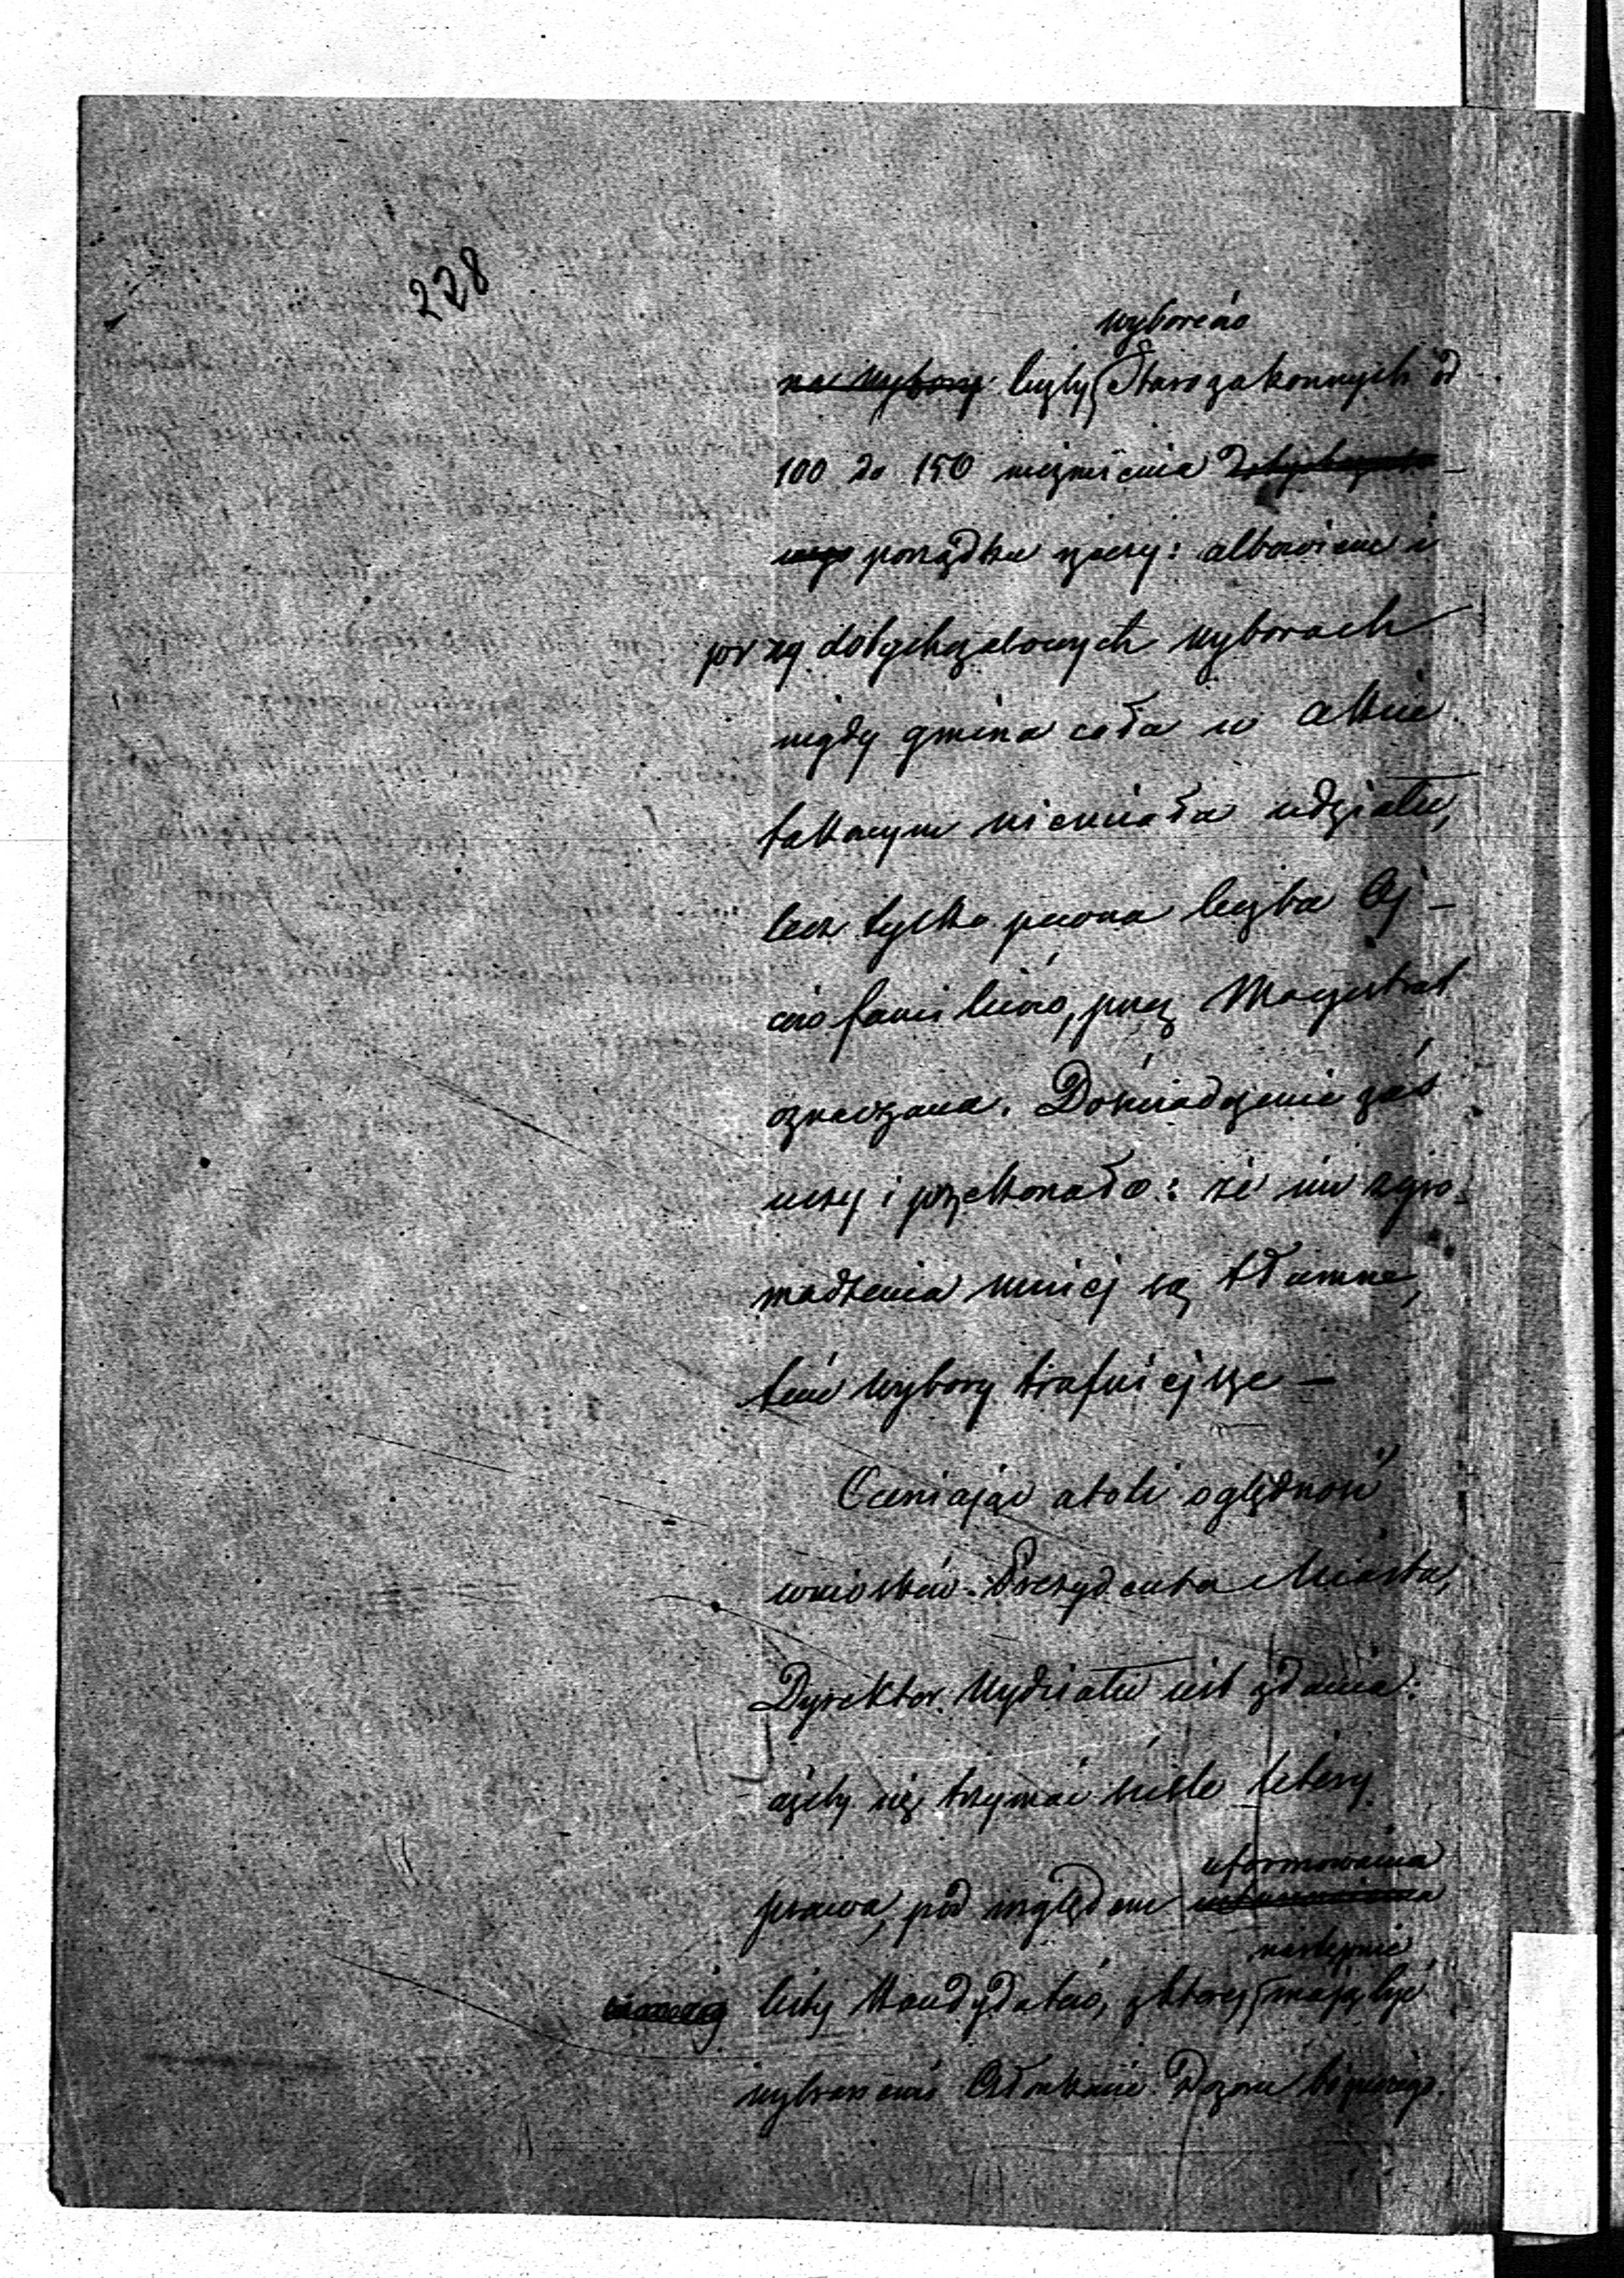 228
wyborców
na wybory liczby Starozakonnych od
100 do 150 niezmienia dotychczaso-
wego porządku rzeczy: albowiem i
przy dotychczasowych wyborach
nigdy gmina cała w akcie
takowym niemiała udziału,
lecz tylko pewna liczba Oj-
ców familiów, przez Magistrat
oznaczana. Doświadczenie zaś
uczy i przekonało: że im zgro-
madzenia mniej są tłumne,
tem wybory trafniejsze —
Oceniając atoli oględność
wniosków Prezydenta Miasta,
Dyrektor Wydziału jest zdania:
ażeby się trzymać ściśle litery
uformowania
prawa, pod względem
następnie
listy Kandydatów, z której mają być
wybranemi Członkowie Dozoru bóżniczego.